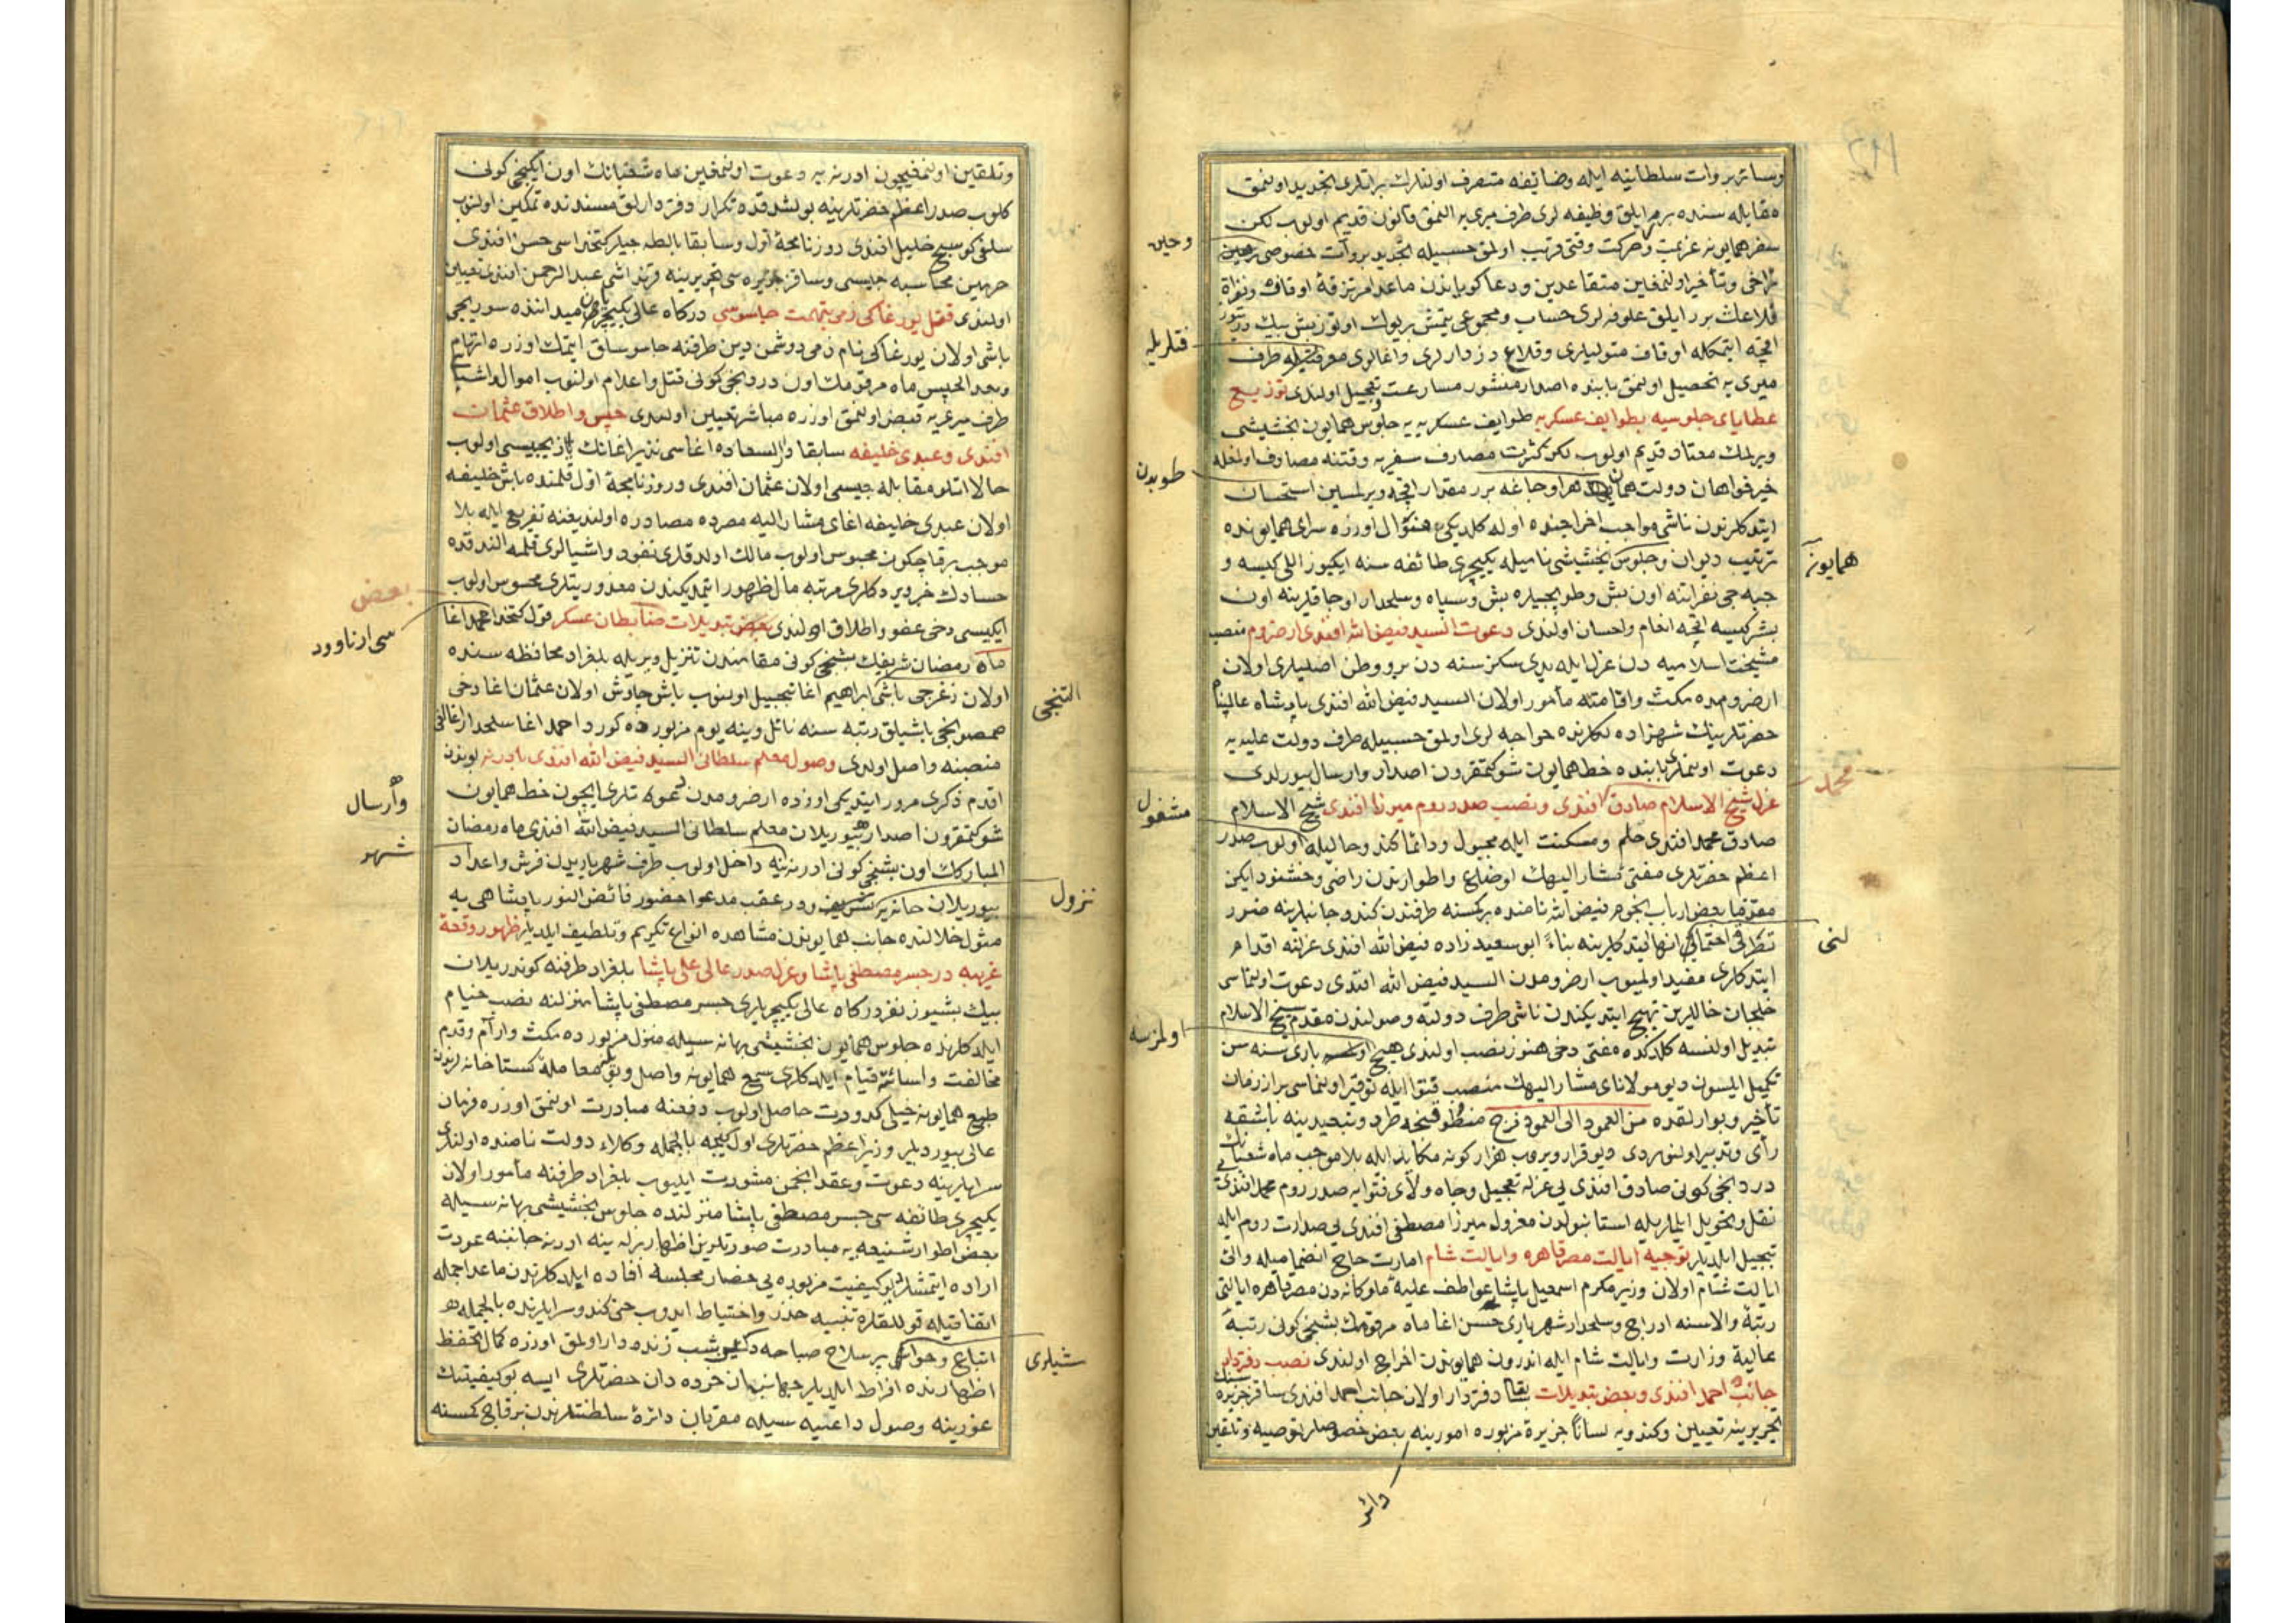 وسائر بروات سلطانیه ایله وضایفه متصرف اولنلرك براتلری تجدید اولنمق
مقابله سنده برر ایلق وظیفه لری طرف میری یه النمق قانون قدیم اولوب لکن
سفر همایونه عزیمت وحرکت وقتی قریب اولمق حسبیله تجدید بروات خصوصی
وحین
تراخی وتأخیر اولنمغین متقاعدین ودعاکویاندن ماعدا مرتزقهٔ اوقاف ونفرات
قلاعك برر ایلق علوفه لری حساب ومجموعی یتمش بر یوك اوتوز بش بیك
اقچه ایتمکله اوقاف متولیلری وقلاع دزدارلری واغالری طرف
میری یه تحصیل اولنمق بابنده اصدار منشور مسارعت وتعجیل اولندی توزیع
عطایای جلوسیه بطوایف عسکریه طوایف عسکریه یه جلوس همایون بخششی
ویرلمك معتاد قدیم اولوب لکن کثرت مصارف سفریه وقتنه مصادف اولمغله
طوبدن
خیرخواهان دولت همان هر اوجاغه برر مقدار اقچه ویرلمسین استحسان
ایتدکلرندن ناشی مواجب اخراجنده اوله کلدیکی منوال اوزره سرای همایونده
همایونه
ترتیب دیوان وجلوس بخششی نامیله یکیچری طائفه سنه ایکیوز اللی کیسه و
جبه جی نفراتنه اون بش وطوپجیلره بش وسپاه وسلحدار اوجاقلرینه اون
بشر کیسه اقچه انعام واحسان اولندی دعوت السید فیض الله افندی از ارضروم منصب
مشیخت اسلامیه دن عزل ایله یدی سکز سنه دن برو وطن اصلیلری اولان
ارضرومده مکث واقامته مأمور اولان السید فیض الله افندی پادشاه عالیپناه
حضرتلرینك شهزاده لکلرنده خواجه لری اولمق حسبیله طرف دولت علیه یه
دعوت اولنملری بابنده خط همایون شوکتمقرون اصدار وارسال بیورلدی
محمد
عزل شیخ الاسلام صادق افندی ونصب صدر روم میرزا افندی شیخ الاسلام
صادق محمد افندی حلم ومسکنت ایله مجبول ودائما کندو حالیله اولوب صدر
مشغول
اعظم حضرتلری مفتئ مشار الیهك اوضاع واطوارندن راضی وخشنود ایکن
مقدما بعض ارباب نجوم فیض الله نامنده بر کمسنه طرفندن کندو جانبلرینه ضرر
تطرقی احتمالی انها ایتدکلرینه بناءً ابو سعید زاده فیض الله افندی عزلنه اقدام
ایتدکلری مفید اولمیوب ارضرومدن السید فیض الله افندی دعوت اولنماسی
خلجان خاطرلرین تهییج ایتدیکندن ناشی طرف دولته وصولندن مقدم شیخ الاسلام
تبدیل اولنسه کلدکده مفتی دخی هنوز نصب اولندی هیچ باری سنه سن
اولمزسه
تکمیل ایلسون دیو مولانای مشار الیهك منصب فتوا ایله توقیر اولنماسی براز زمان
تأخیر وبوارلقده من العمود الی العمود فرج
رأی وتدبیر اولنور دی دیو قرار ویروب هزار کونه مکاید ایله بلا موجب ماه شعبانك
دردنجی کونی صادق افندی یی عزله تعجیل وجاه والای فتوا یه صدر روم محمد افندی یی
نقل وتحویل ایلملریله استانبولدن معزول میرزا مصطفی افندی یی صدارت روم ایله
تبجیل ایلدیلر توجیه ایالت مصر قاهره وایالت شام امارت حاج انضمامیله والئ
ایالت شام اولان وزیر مکرم اسمعیل پاشا عواطف علیه ملوکانه دن مصر قاهره ایالتی
رتبهٔ والاسنه ادراج وسلحدار شهریاری حسن اغا ماه مرقومك بشنجی کونی رتبهٔ
عالیهٔ وزارت وایالت شام ایله اندرون همایوندن اخراج اولندی نصب دفتردار
جانب احمد افندی وبعض تبدیلات سابقا دفتردار اولان جانب احمد افندی ساقز جزیره سنك
تحریرینه تعیین وکندویه لساناً جزیرهٔ مزبوره امورینه بعض خصوصلر توصیه وتلقین
دائر
وتلقین اولنمغیچون ادرنه یه دعوت اولنمغین ماه شعبانك اون ایکنجی کونی
کلوب صدر اعظم حضرتلرینه بولشدقده تکرار دفتردارلق مسندنده تمکین اولنوب
سلفی کوسج خلیل افندی روزنامچهٔ اول وسابقا بالطه جیلر کتخداسی حسن افندی
حرمین محاسبه جیسی وساقز جزیره سی تحریرینه قرنداشی عبد الرحمن افندی تعیین
اولندی قتل یورغاکی ذمی بتهمت جاسوسی درکاه عالی یکیچریلرن میداننده سوریجی
باشی اولان یورغاکی نام ذمی دوشمن دین طرفنه جاسوسلق ایتمك اوزره اتهام
وبعد الحبس ماه مرقومك اون دردنجی کونی قتل واعدام اولنوب اموال واشیاسی
طرف میری یه قبض اولنمق اوزره مباشر تعیین اولندی حبس واطلاق عثمان
افندی وعبدی خلیفه سابقا دار السعاده اغاسی نذیر اغانك یازیجیسی اولوب
حالا اتلو مقابله جیسی اولان عثمان افندی وروزنامچهٔ اول قلمنده باش خلیفه
اولان عبدی خلیفه اغای مشار الیه مصرده مصادره اولندیغنه تفریع ایله بلا
موجب برقاچ کون محبوس اولوب مالك اولدقلری نقود واشیالری قلمه النـدقده
حسادك خبر ویردکلری مرتبه مال ظهور ایتمدیکندن معذوریتلری محسوس اولوب
بعض
ایکیسی دخی عفو واطلاق اولندی بعض تبدیلات ضابطان عسکر قول کتخداسی احمد اغا
سی ارناوود
ماه رمضان شریفك بشنجی کونی مقامندن تنزیل ویریله بلغراد محافظه سنده
التنجی
اولان زغرجی باشی ابراهیم اغا تبجیل اولنوب باش چاوش اولان عثمان اغا دخی
صمصونجی باشیلق رتبه سنه نائل وینه یوم مزبورده کورد احمد اغا سلحدار اغالغی
منصبنه واصل اولدی وصول معلم سلطانی السید فیض الله افندی بادرنه بوندن
اقدم ذکری مرور ایتدیکی اوزره ارضرومدن دعوتلری ایچون خط همایون
شوکتمقرون اصدار بیوریلان معلم سلطانی السید فیض الله افندی ماه رمضان
وارسال
المبارکك اون بشنجی کونی ادرنه یه داخل اولوب طرف شهریاریدن فرش واعداد
شهر
بیوریلان خانه یه ودر عقب مدعوا حضور فائض النور پادشاهی یه
نزول
مثول خلالنده جانب همایوندن مشاهده انواع تکریم وتلطیف ایلدیلر ظهور وقعهٔ
غریبه در جسر مصطفی پاشا وعزل صدر عالی علی پاشا بلغراد طرفنه کوندریلان
بیك بشیوز نفر درکاه عالی یکیچریلری جسر مصطفی پاشا منزلنه نصب خیام
ایلدکلرنده جلوس همایون بخششی بهانه سیله منزل مزبورده مکث وارام وقدم
مخالفت واسائته قیام ایلدکلری سمع همایونه واصل وبو معاملهٔ کستاخانه لرندن
طبع همایونه خیلی کدورت حاصل اولوب دفعنه مبادرت اولنمق اوزره فرمان
عالی بیوردیلر وزیر اعظم حضرتلری اول کیجه بالجمله وکلاء دولت نامنده اولنلری
سرایلرینه دعوت وعقد انجمن مشورت ایلیوب بلغراد طرفنه مأمور اولان
یکیچری طائفه سی جسر مصطفی پاشا منزلنده جلوس بخششی بهانه سیله
بعض اطوار شنیعه یه مبادرت صورتلرین اظهار برله ینه ادرنه جانبنه عودت
اراده ایتمشلر بو کیفیت مزبوره یی حضار مجلسه افاده ایلدکلرندن ماعدا جمله
اتفاقیله قوللقلره تنبیه حذر واحتیاط ایدوب حتی کندو سرایلرنده بالجمله
اتباع وحواشیلری بر سلاح صباحه دکین شب زنده دار اولمق اوزره کمال تحفظ
شیلری
اظهارنده افراط ایلدیلر جهانبان خرده دان حضرتلری ایسه بو کیفیتك
غورینه وصول داعیه سیله مقربان دائرهٔ سلطنتلرندن برقاچ کمسنه